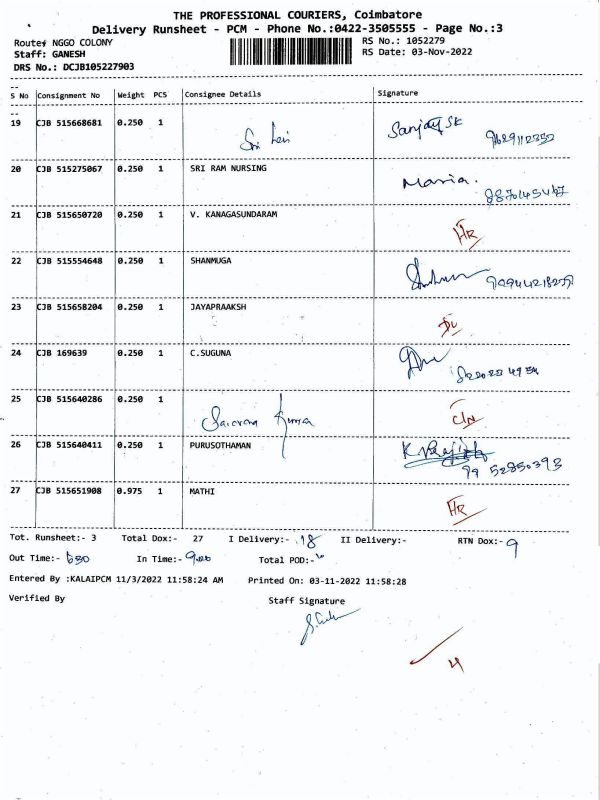 THE PROFESSIONAL COURIERS, Coimbatore
Delivery Runsheet - PCM - Phone No.:0422-3505555 - Page No.:3
Route: NGGO COLONY
RS No.: 1052279
Staff: GANESH
RS Date: 03-Nov-2022
DRS No.: DCJB105227903
S No Consignment No Weight PCS Consignee Details Signature
19 CJB 515668681 0.250 1 Sri Sanjay SK
9629112352
20 CJB 515275067 0.250 1 SRI RAM NURSING Maria.
21 CJB 515650720 0.250 1 V. KANAGASUNDARAM
HR
22 CJB 515554648 0.250 1 SHANMUGA
23 CJB 515658204 0.250 1 JAYAPRAAKSH
DL
24 CJB 169639 0.250 1 C.SUGUNA
25 CJB 515640286 0.250 1
Kumar C/N
26 CJB 515640411 0.250 1 PURUSOTHAMAN
99 52850393
27 CJB 515651908 0.975 1 MATHI
HR
Tot. Runsheet:- 3 Total Dox:- 27 I Delivery:- 18 II Delivery:- RTN Dox:- 9
Out Time:- 630 In Time:- 900 Total POD:-
Entered By :KALAIPCM 11/3/2022 11:58:24 AM Printed On: 03-11-2022 11:58:28
Verified By Staff Signature